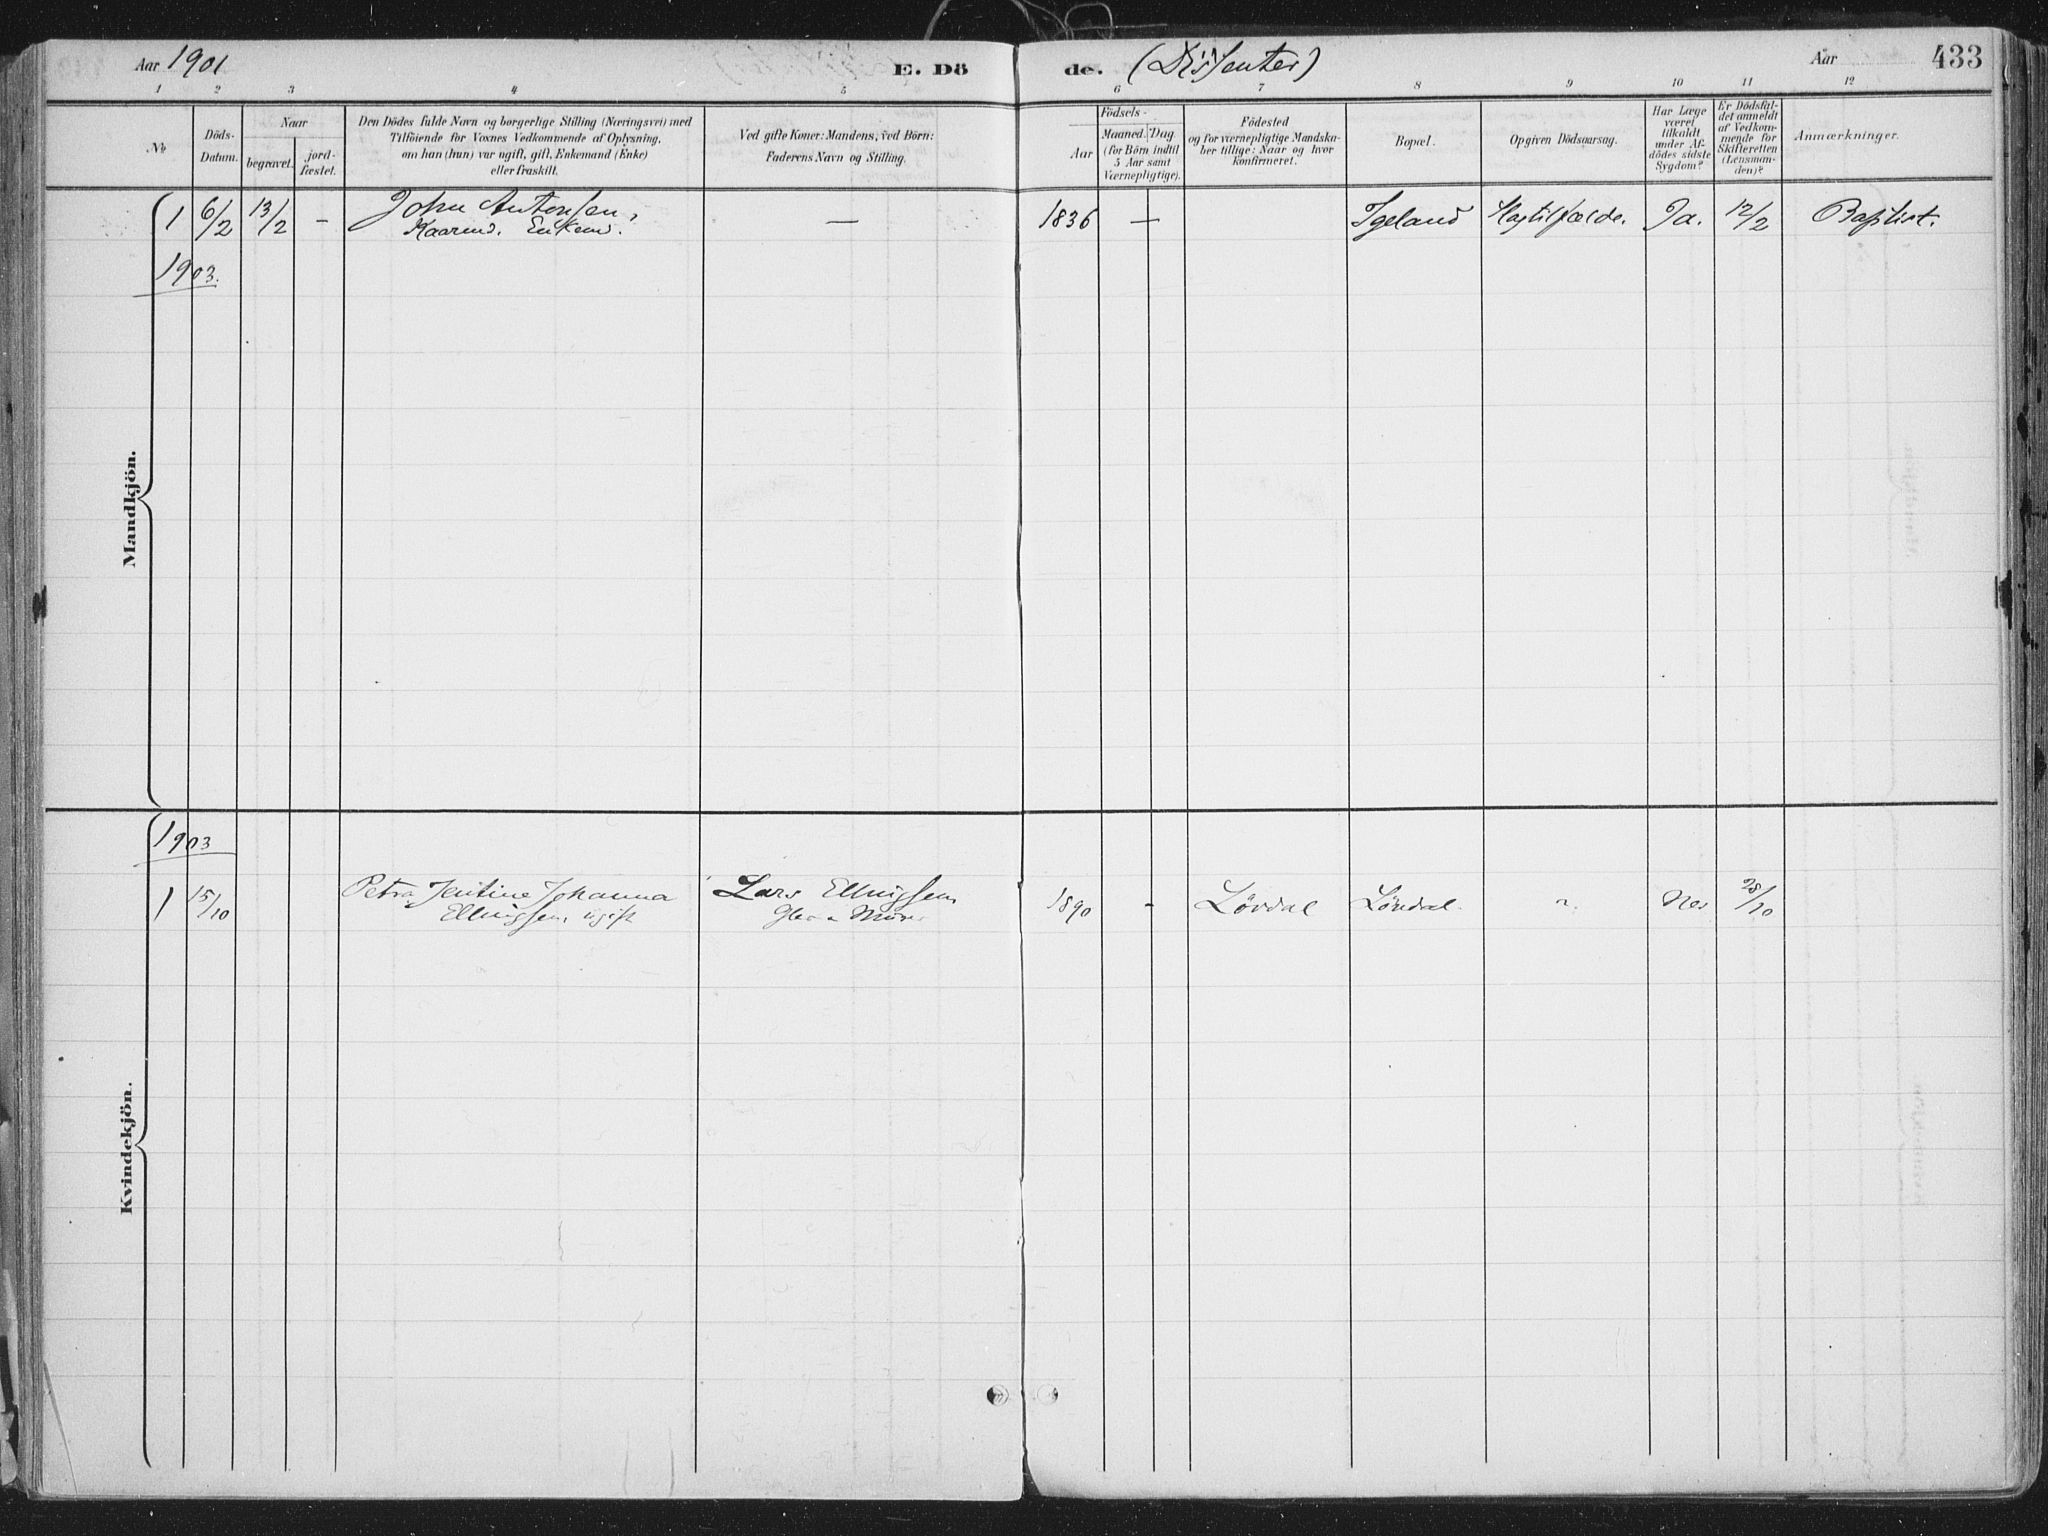 Aar 1901
E. Dö
de. (Dissenter)
Aar
433
1 2 3 4 5 6 7 8 9 10 11 12
No
Döds-
Datum.
Naar
begravet.
jord-
fæstet.
Den Dödes fulde Navn og borgerlige Stilling (Næringsvei) med
Tilföiende for Voxnes Vedkommende af Oplysning,
om han (hun) var ugift, gift, Enkemand (Enke)
eller fraskilt.
Ved gifte Koner: Mandens, ved Börn:
Faderens Navn og Stilling.
Födsels-
Aar
Maaned. Dag.
(for Börn indtil
5 Aar samt
Værnepligtige).
Födested
og for værnepligtige Mandska-
ber tillige: Naar og hvor
konfirmeret.
Bopæl.
Opgiven Dödsaarsag.
Har Læge
været
tilkaldt
under Af-
dödes sidste
Sygdom?
Er Dödsfal-
det anmeldt
af Vedkom-
mende for
Skifteretten
(Lensman-
den)?
Anmærkninger.
Mandkjön.
1 6/2 13/2 - John Antonsen, — 1836 — Igeland Ja. 12/2 Baptist.
1903.
Kvindekjön.
1903
1 15/10 Petra Jentine Johanna Lars Ellingsen 1890 - Lövdal Lövdal 28/10
Ellingsen, ugift